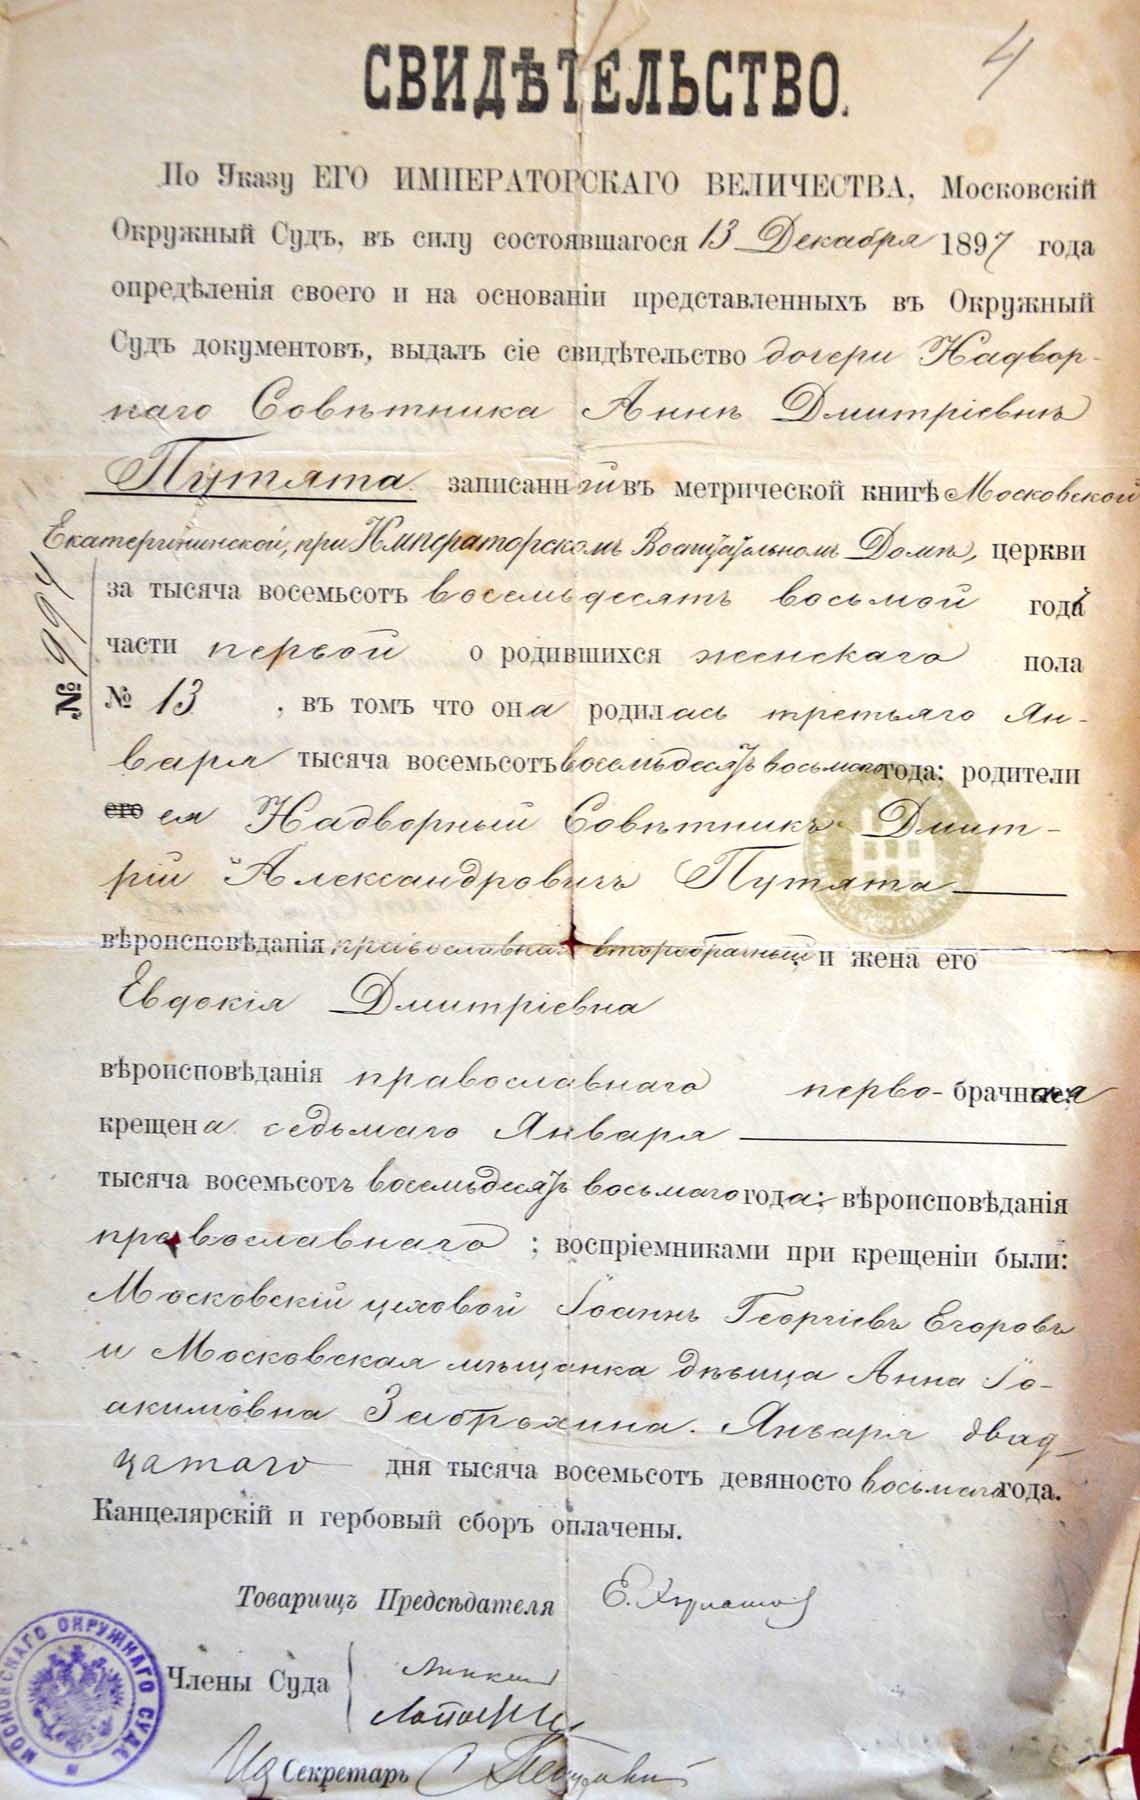 4
СВИДѢТЕЛЬСТВО.
По Указу ЕГО ИМПЕРАТОРСКАГО ВЕЛИЧЕСТВА, Московскій
Окружный Судъ, въ силу состоявшагося 13 Декабря 1897 года
опредѣленія своего и на основаніи представленныхъ въ Окружный
Судъ документовъ, выдалъ сіе свидѣтельство дочери Надвор-
наго Совѣтника Аннѣ Дмитріевнѣ
Путята записанной въ метрической книгѣ Московской
Екатерининской, при Императорскомъ Воспитательномъ Домѣ, церкви
за тысяча восемьсотъ восемьдесятъ восьмой годъ
части первой о родившихся женскаго пола
№ 994
№ 13, въ томъ что она родилась третьяго Ян-
варя тысяча восемьсотъ восемьдесятъ восьмаго года: родители
его ея Надворный Совѣтникъ Дмит-
рій Александровичъ Путята
вѣроисповѣданія православнаго второбрачный и жена его
Евдокія Дмитріевна
вѣроисповѣданія православнаго перво-брачная
крещена седьмаго Января
тысяча восемьсотъ восемьдесятъ восьмаго года; вѣроисповѣданія
православнаго; воспріемниками при крещеніи были:
Московскій цеховой Іоаннъ Георгіевъ Егоровъ
и Московская мѣщанка дѣвица Анна Іо-
акимовна Января двад-
цатаго дня тысяча восемьсотъ девяносто восьмаго года.
Канцелярскій и гербовый сборъ оплачены.
Товарищъ Предсѣдателя
Члены Суда
Секретарь
МОСКОВСКАГО ОКРУЖНАГО СУДА